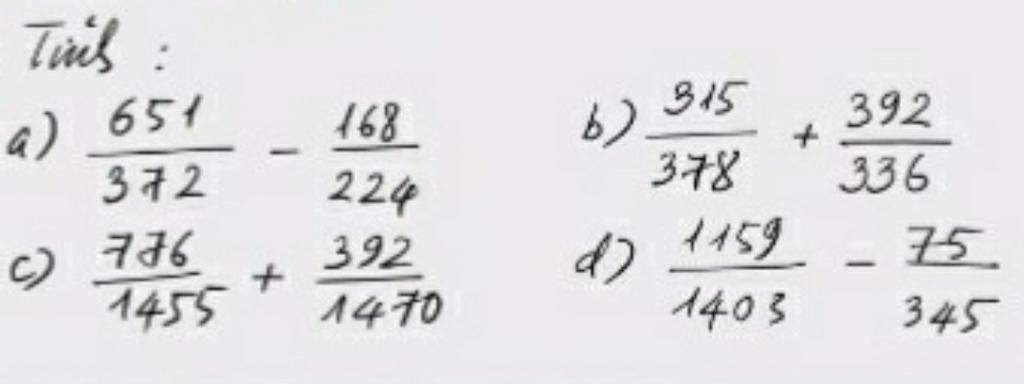 Tính :
a) 651/372 - 168/224 b) 315/378 + 392/336
c) 776/1455 + 392/1470 d) 1159/1403 - 75/345